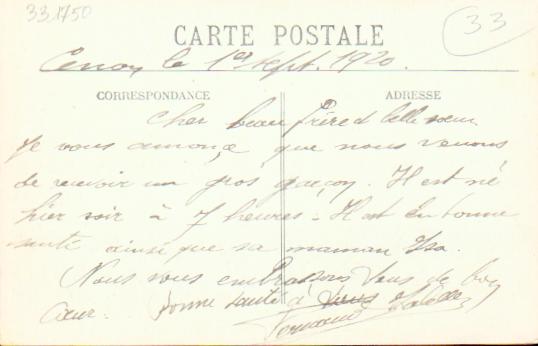 33.1750
33
CARTE POSTALE
Cenon le 1er sept. 1920.
CORRESPONDANCE
ADRESSE
Cher beau frère et belle soeur
Je vous annonce que nous venons
de recevoir un gros garçon. Il est né
hier soir à 7 heures. Il est en bonne
santé ainsi que sa maman
Nous vous embrassons tous de bon
Coeur. Bonne santé à tous